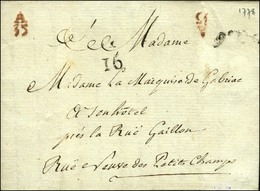 1778
A
35
A Madame
16
Madame La Marquise de Gabriac
A son hôtel
près la Ruë Gaillon
Ruë Neuve des Petits Champs